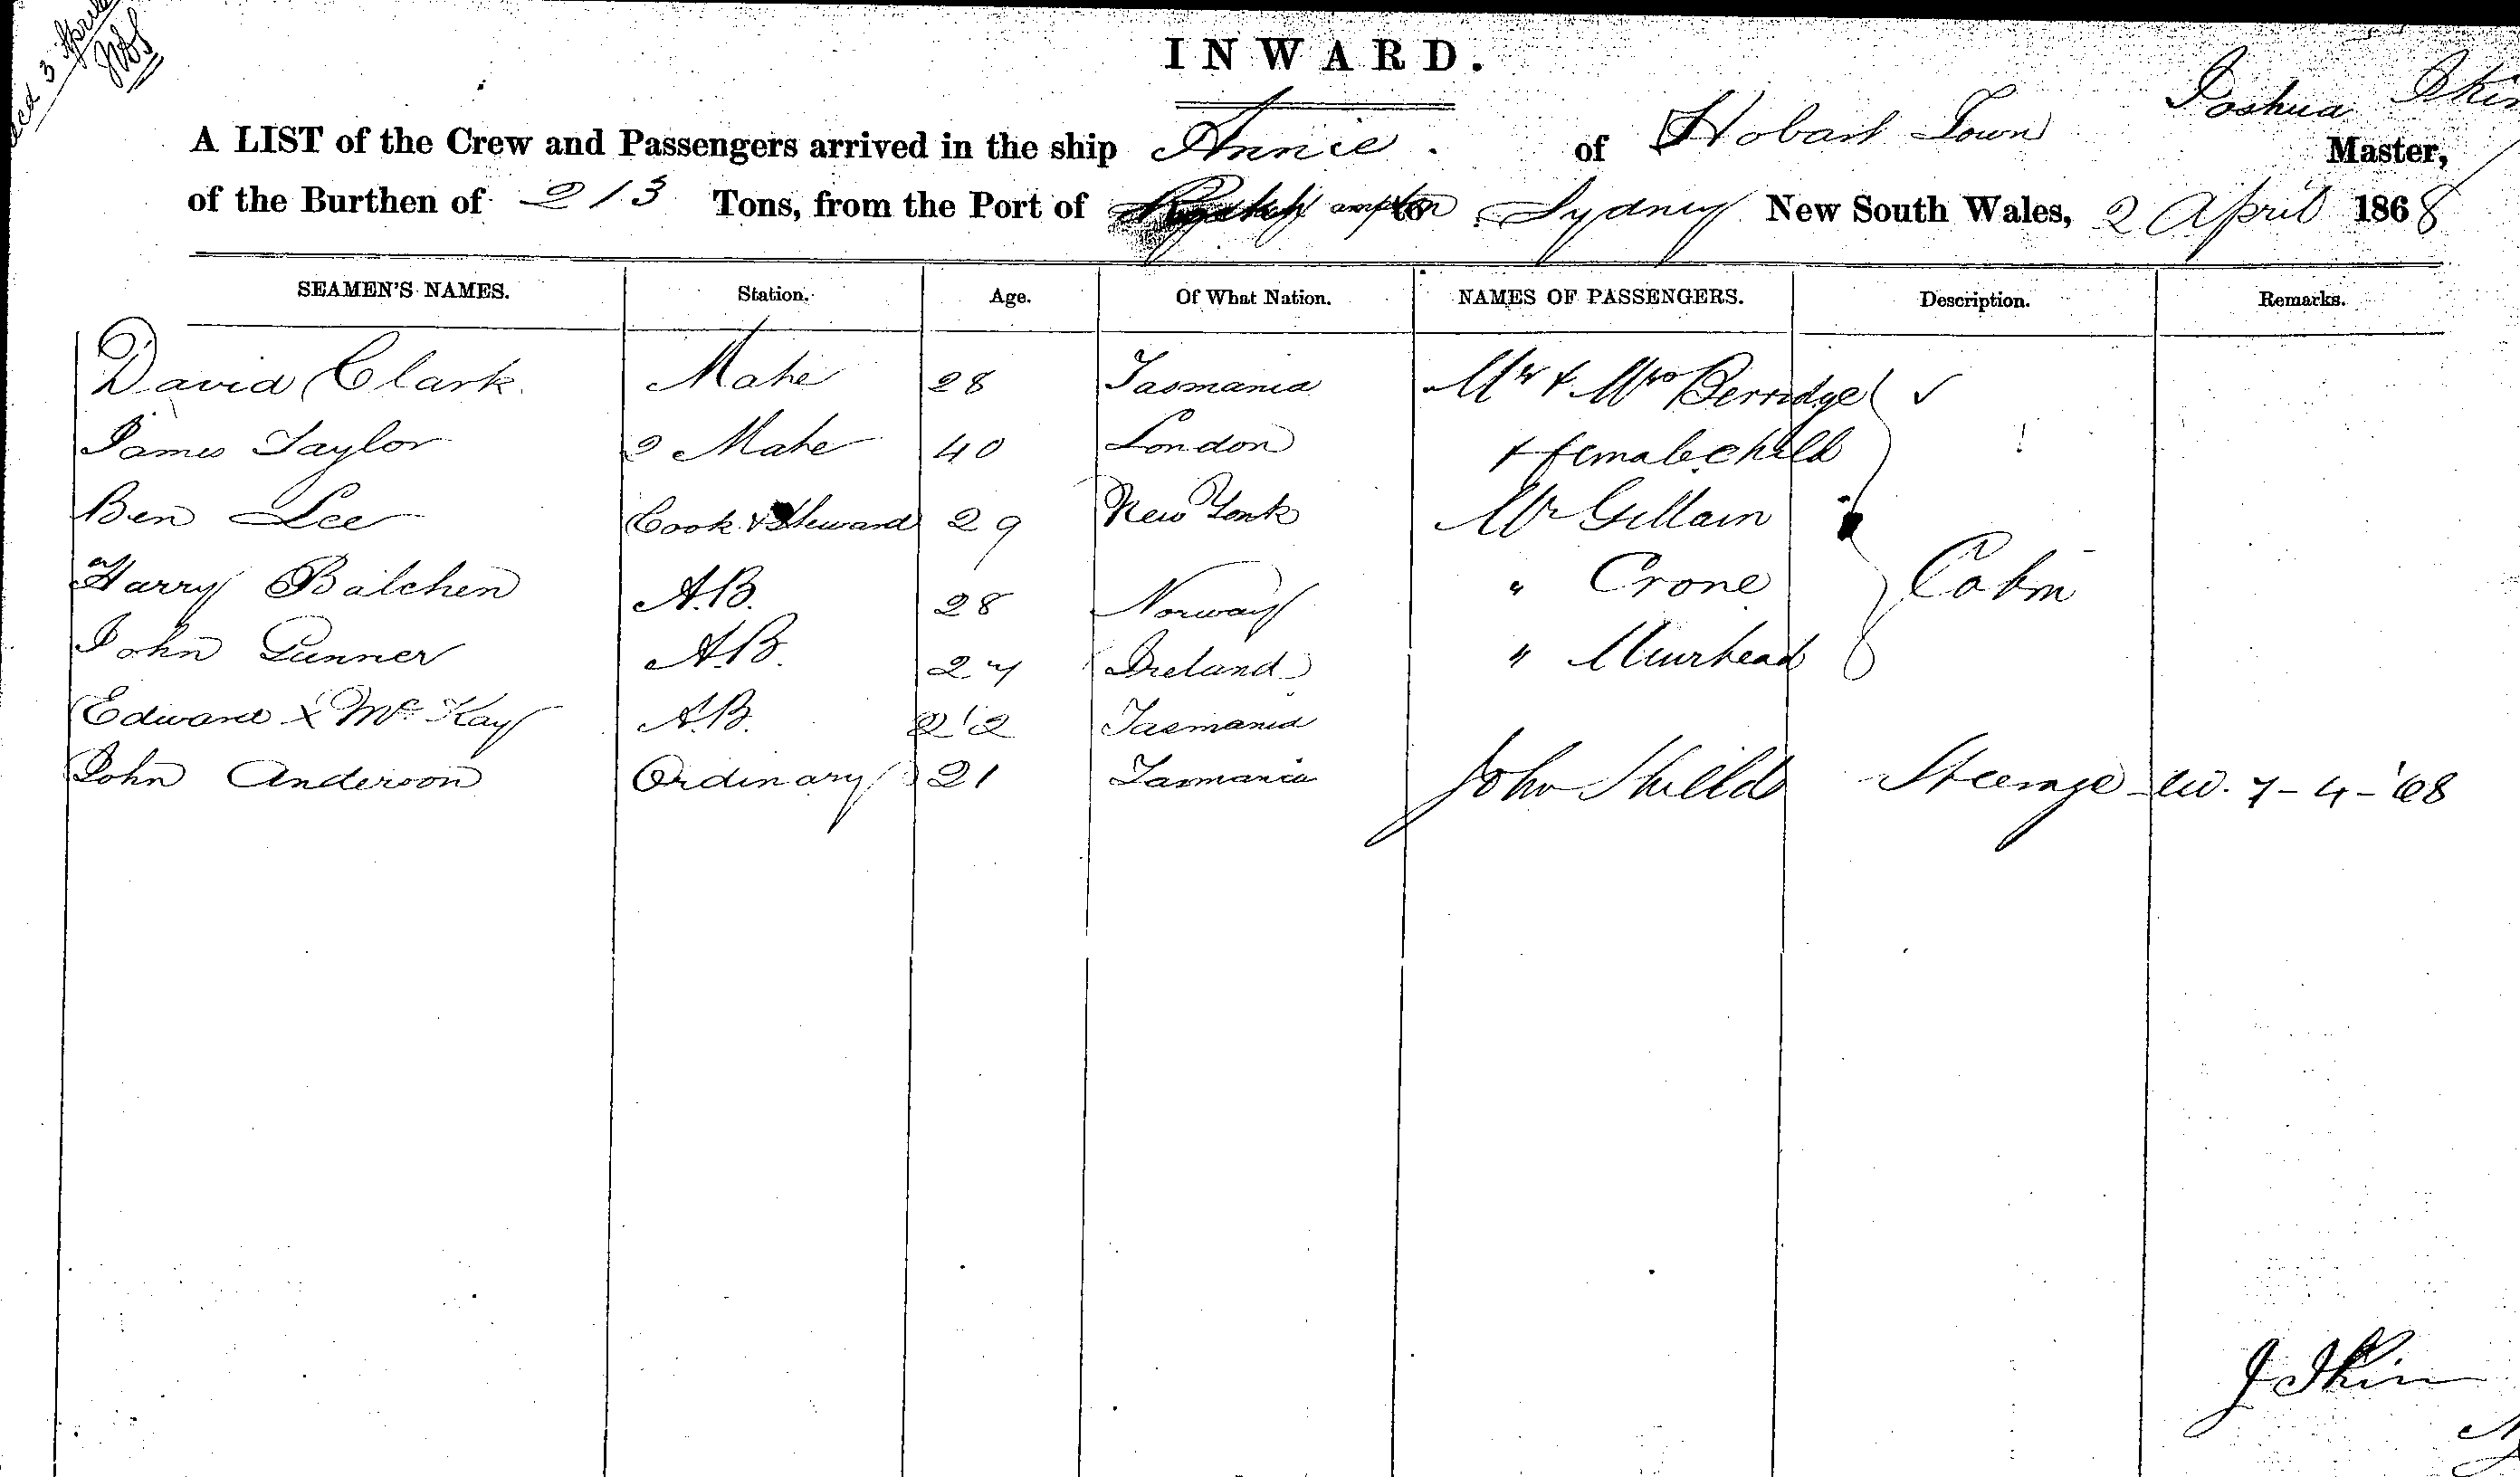 3 April
INWARD.
Joshua
A LIST of the Crew and Passengers arrived in the ship Annie. of Hobart Town Master,
of the Burthen of 213 Tons, from the Port of to Sydney New South Wales, 2 April 1868
SEAMEN'S NAMES. Station. Age. Of What Nation. NAMES OF PASSENGERS. Description. Remarks.
David Clark Mate 28 Tasmania Mr & Mrs Berridge ✓
James Taylor 2 Mate 40 London & female child
Ben Lee Cook & Steward 29 New York Mr Gillain
Harry Balchen A.B. 28 Norway " Crone Cabin
John Gunner A.B. 24 Ireland " Muirhead
Edward X Mc Kay A.B. 22 Tasmania
John Anderson Ordinary 21 Tasmania John Shields Steerage 7-4-'68
J Ikin